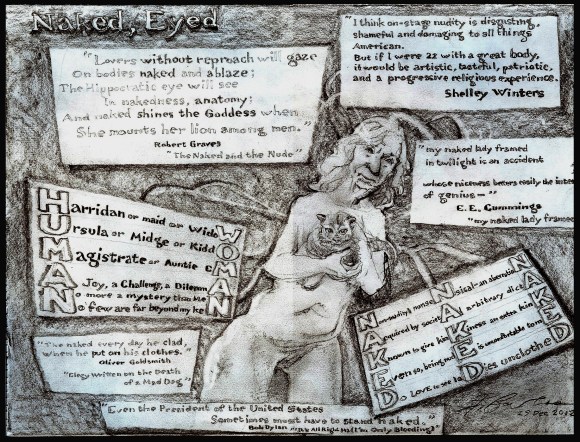 Naked, Eyed
"Lovers without reproach will gaze
On bodies naked and ablaze;
The Hippocratic eye will see
In nakedness, anatomy;
And naked shines the Goddess when
She mounts her lion among men."
Robert Graves
"The Naked and the Nude"
"I think on-stage nudity is disgusting,
shameful and damaging to all things
American.
But if I were 22 with a great body,
it would be artistic, tasteful, patriotic,
and a progressive religious experience.
Shelley Winters
"my naked lady framed
in twilight is an accident
whose niceness betters easily the intent
of genius—"
E.E. Cummings
"my naked lady framed
HUMAN
WOMAN
Harridan or maid or Wido
Ursula or Midge or Kidd
Magistrate or Auntie
A Joy, a Challenge, a Dilemm
No more a mystery than Me
No few are far beyond my ke
NAKED
NAKED
NAKED
Non-sensical: an aberration
Required by society
arbitrary dict
Known to give him
Kinkiness an extra
Even so, being
is uncomfortable
Do LOVE to see
Dies unclothed
"The naked every day he clad,
When he put on his clothes."
Oliver Goldsmith
"Elegy Written on the Death
of a Mad Dog"
"Even the President of the United States
Sometimes must have to stand naked."
Bob Dylan "It's All Right Ma (I'm Only Bleeding)"
25 DEC 2012